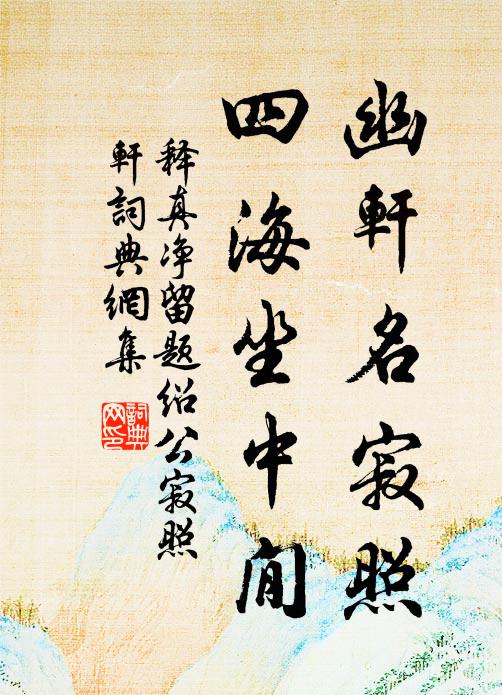 幽軒名寂照
四海坐中閒
释真净留题绍公寂照
軒詞典網集
詞典
网印